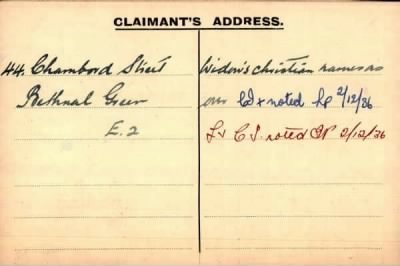 CLAIMANT'S ADDRESS.
44. Chambord Street
Bethnal Green
E.2
Widow's christian names as
our noted 2/12/36
noted 2/12/36